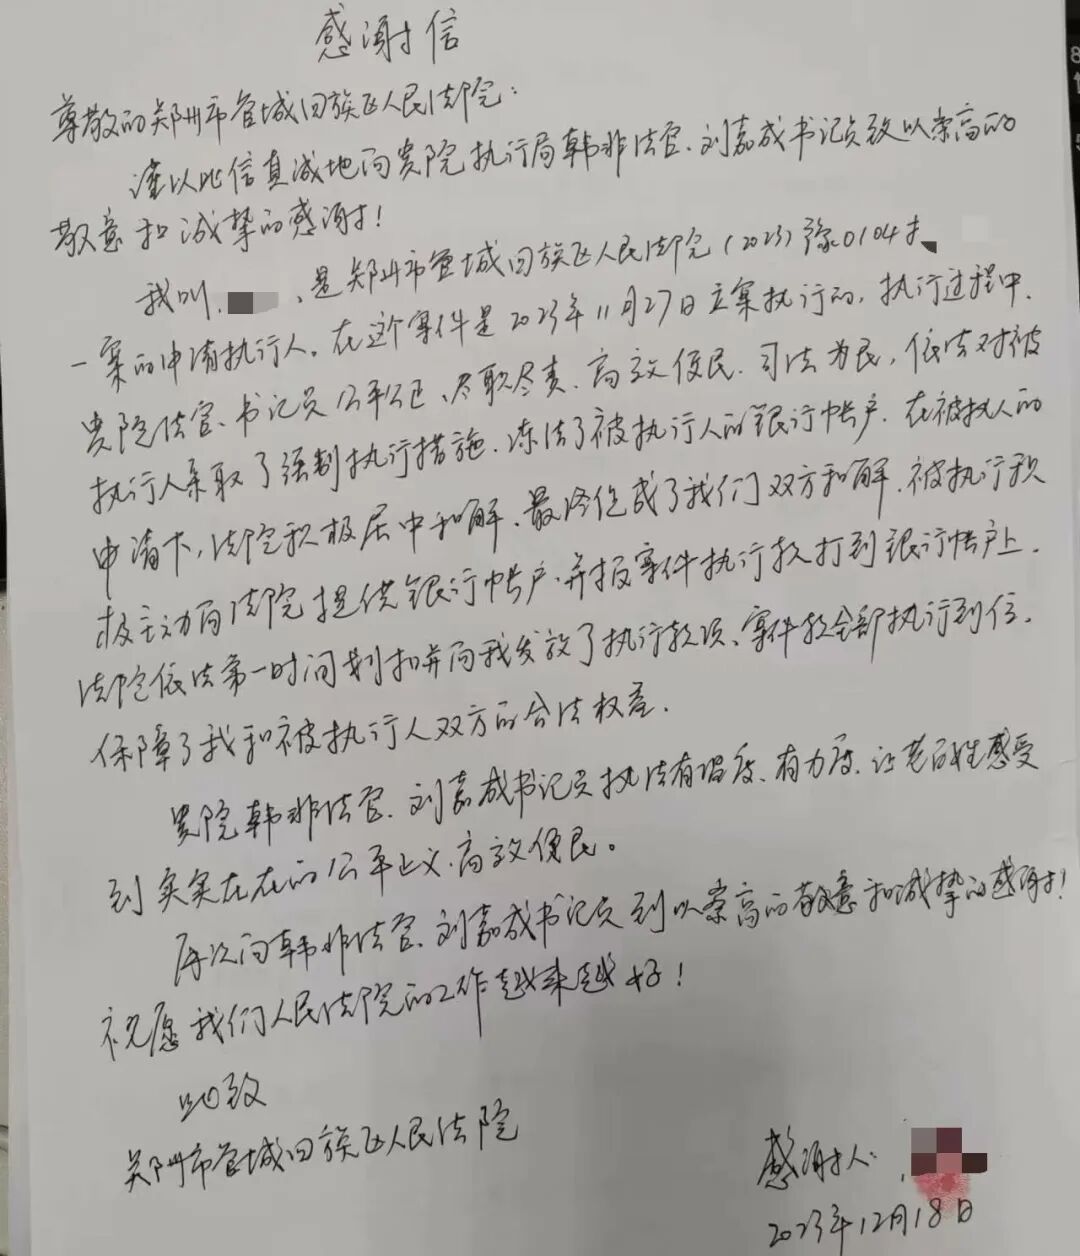 感谢信
尊敬的郑州市管城回族区人民法院：
谨以此信真诚地向贵院执行局韩非法官、刘嘉成书记员致以崇高的
敬意和诚挚的感谢！
我叫、是郑州市管城回族区人民法院(2023)豫0104
一案的申请执行人。在这个案件是2023年11月27日立案执行的，执行过程中.
贵院法官、书记员公平公正、尽职尽责、高效便民.司法为民，依法对被
执行人采取了强制执行措施.冻结了被执行人的银行帐户.在被执人的
申请下，法院积极居中和解、最终促成了我们双方和解.被执行积
极主动向法院提供银行帐户.并报案件执行款打到银行帐户上.
法院依法第一时间划扣并向我发放了执行款项、案件款全部执行到位.
保障了我和被执行人双方的合法权益.
贵院韩非法官、刘嘉成书记员执法有温度、有力度、让老百姓感受
到实实在在的公平正义.高效便民。
再次向韩非法官、刘嘉成书记员到以崇高的敬意和诚挚的感谢！
祝愿我们人民法院的工作越来越好！
此致
郑州市管城回族区人民法院
感谢人：
2023年12月18日